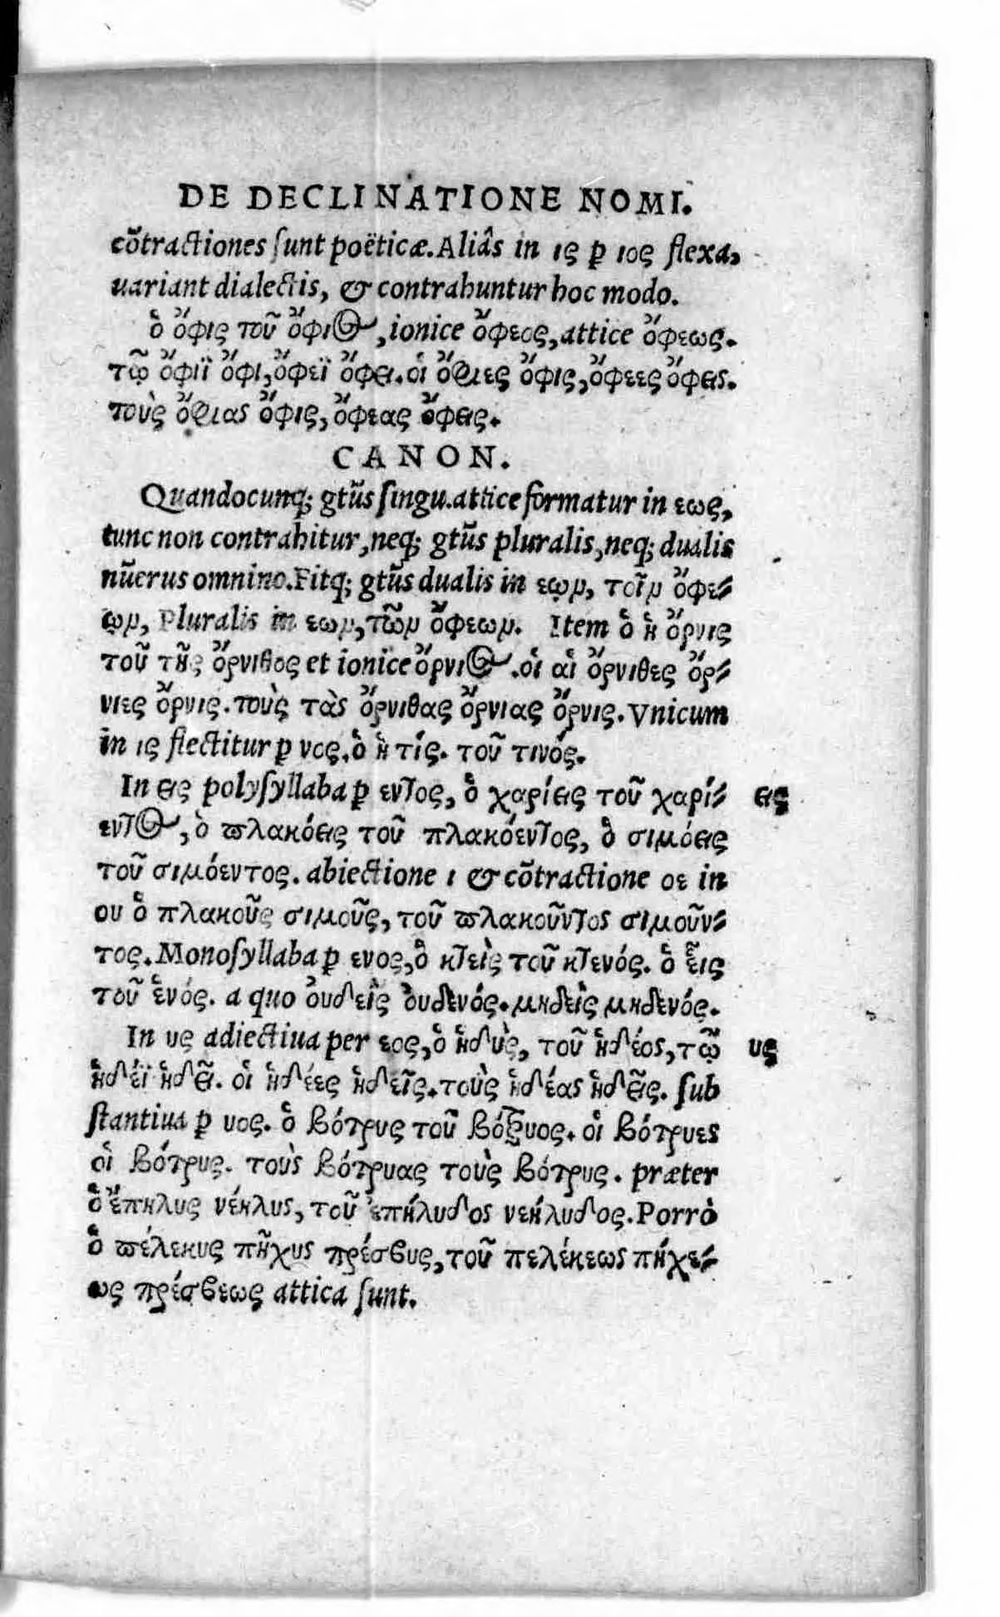 DE DECLINATIONE NOMI.
cõtractiones sunt poëticæ. Aliâs in ις ꝑ ιος flexa,
uariant dialectis, & contrahuntur hoc modo.
ὁ ὄφις τοῦ ὄφιος, ionice ὄφεος, attice ὄφεως.
τῷ ὄφιϊ ὄφι, ὄφεϊ ὄφει. οἱ ὄφιες ὄφις, ὄφεες ὄφεις.
τοὺς ὄφιας ὄφις, ὄφεας ὄφεις.
CANON.
Quandocunq; gtũs singu. attice formatur in εως,
tunc non contrahitur, neq; gtũs pluralis, neq; dualis
nũerus omnino. Fitq; gtũs dualis in εῳν, τοῖν ὄφε-
ῳν, Pluralis in εων, τῶν ὄφεων. Item ὁ ἡ ὄρνις
τοῦ τῆς ὄρνιθος et ionice ὄρνιος. οἱ αἱ ὄρνιθες ὄρ-
νιες ὄρνις. τοὺς τὰς ὄρνιθας ὄρνιας ὄρνις. Vnicum
in ις flectitur ꝑ νος, ὁ ἡ τίς. τοῦ τινός.
In εις polysyllaba ꝑ εντος, ὁ χαρίεις τοῦ χαρί- εις
εντος, ὁ πλακόεις τοῦ πλακόεντος, ὁ σιμόεις
τοῦ σιμόεντος. abiectione ι & cõtractione οε in
ου ὁ πλακοῦς σιμοῦς, τοῦ πλακοῦντος σιμοῦν-
τος. Monosyllaba ꝑ ενος, ὁ κτεὶς τοῦ κτενός. ὁ εἷς
τοῦ ἑνός. a quo ὀυδεὶς ὀυδενός. μηδεὶς μηδενός.
In υς adiectiua per εος, ὁ ἡδὺς, τοῦ ἡδέος, τῷ υς
ἡδέϊ ἡδεῖ. οἱ ἡδέες ἡδεῖς. τοὺς ἡδέας ἡδεῖς. sub
stantiua ꝑ υος. ὁ βότρυς τοῦ βότρυος. οἱ βότρυες
οἱ βότρυς. τοὺς βότρυας τοὺς βότρυς. præter
ὁ ἔπηλυς νέηλυς, τοῦ ἐπήλυδος νεήλυδος. Porrò
ὁ πέλεκυς πῆχυς πρέσβυς, τοῦ πελέκεως πήχε-
ως πρέσβεως attica sunt.